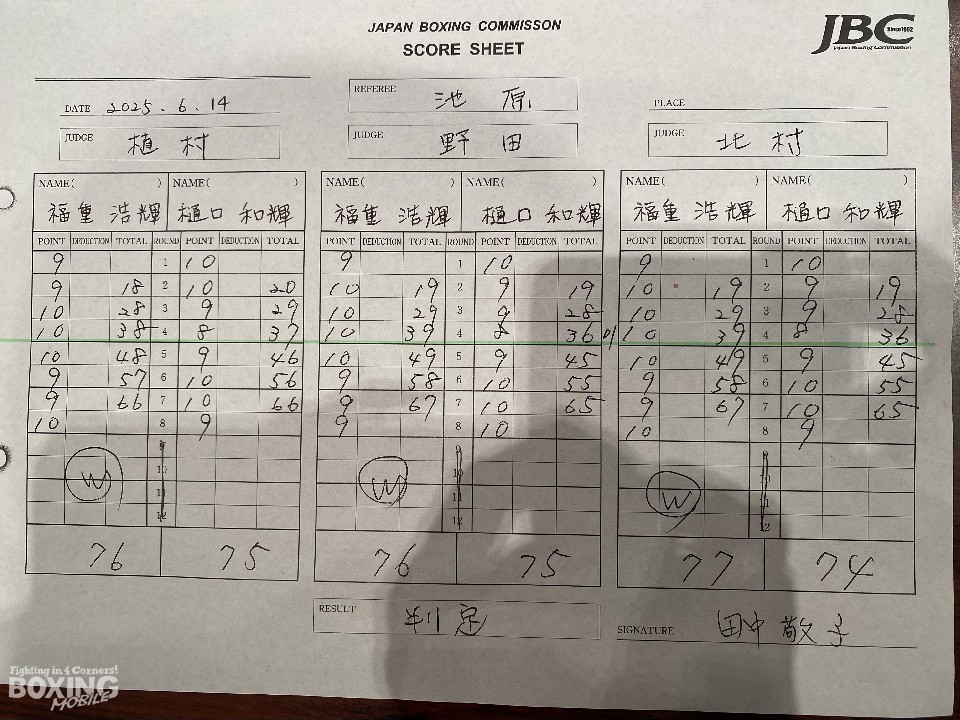 JAPAN BOXING COMMISSON
SCORE SHEET
JBC Since1952
Japan Boxing Commission
DATE 2025.6.14
REFEREE 池原
PLACE
JUDGE 植村
JUDGE 野田
JUDGE 北村
NAME( ) NAME( ) NAME( ) NAME( ) NAME( ) NAME( )
福重 浩輝 樋口 和輝 福重 浩輝 樋口 和輝 福重 浩輝 樋口 和輝
POINT DEDUCTION TOTAL ROUND POINT DEDUCTION TOTAL POINT DEDUCTION TOTAL ROUND POINT DEDUCTION TOTAL POINT DEDUCTION TOTAL ROUND POINT DEDUCTION TOTAL
9 1 10 9 1 10 9 1 10
9 18 2 10 20 10 19 2 9 19 10 19 2 9 19
10 28 3 9 29 10 29 3 9 28 10 29 3 9 28
10 38 4 8 37 10 39 4 8 36 10 39 4 8 36
10 48 5 9 46 10 49 5 9 45 10 49 5 9 45
9 57 6 10 56 9 58 6 10 55 9 58 6 10 55
9 66 7 10 66 9 67 7 10 65 9 67 7 10 65
10 8 9 9 8 10 10 8 9
9 9 9
10 10 10
11 11 11
12 12 12
W W W
76 75 76 75 77 74
RESULT 判定
SIGNATURE 田中敬子
Fighting in 4 Corners!
BOXING
MOBILE